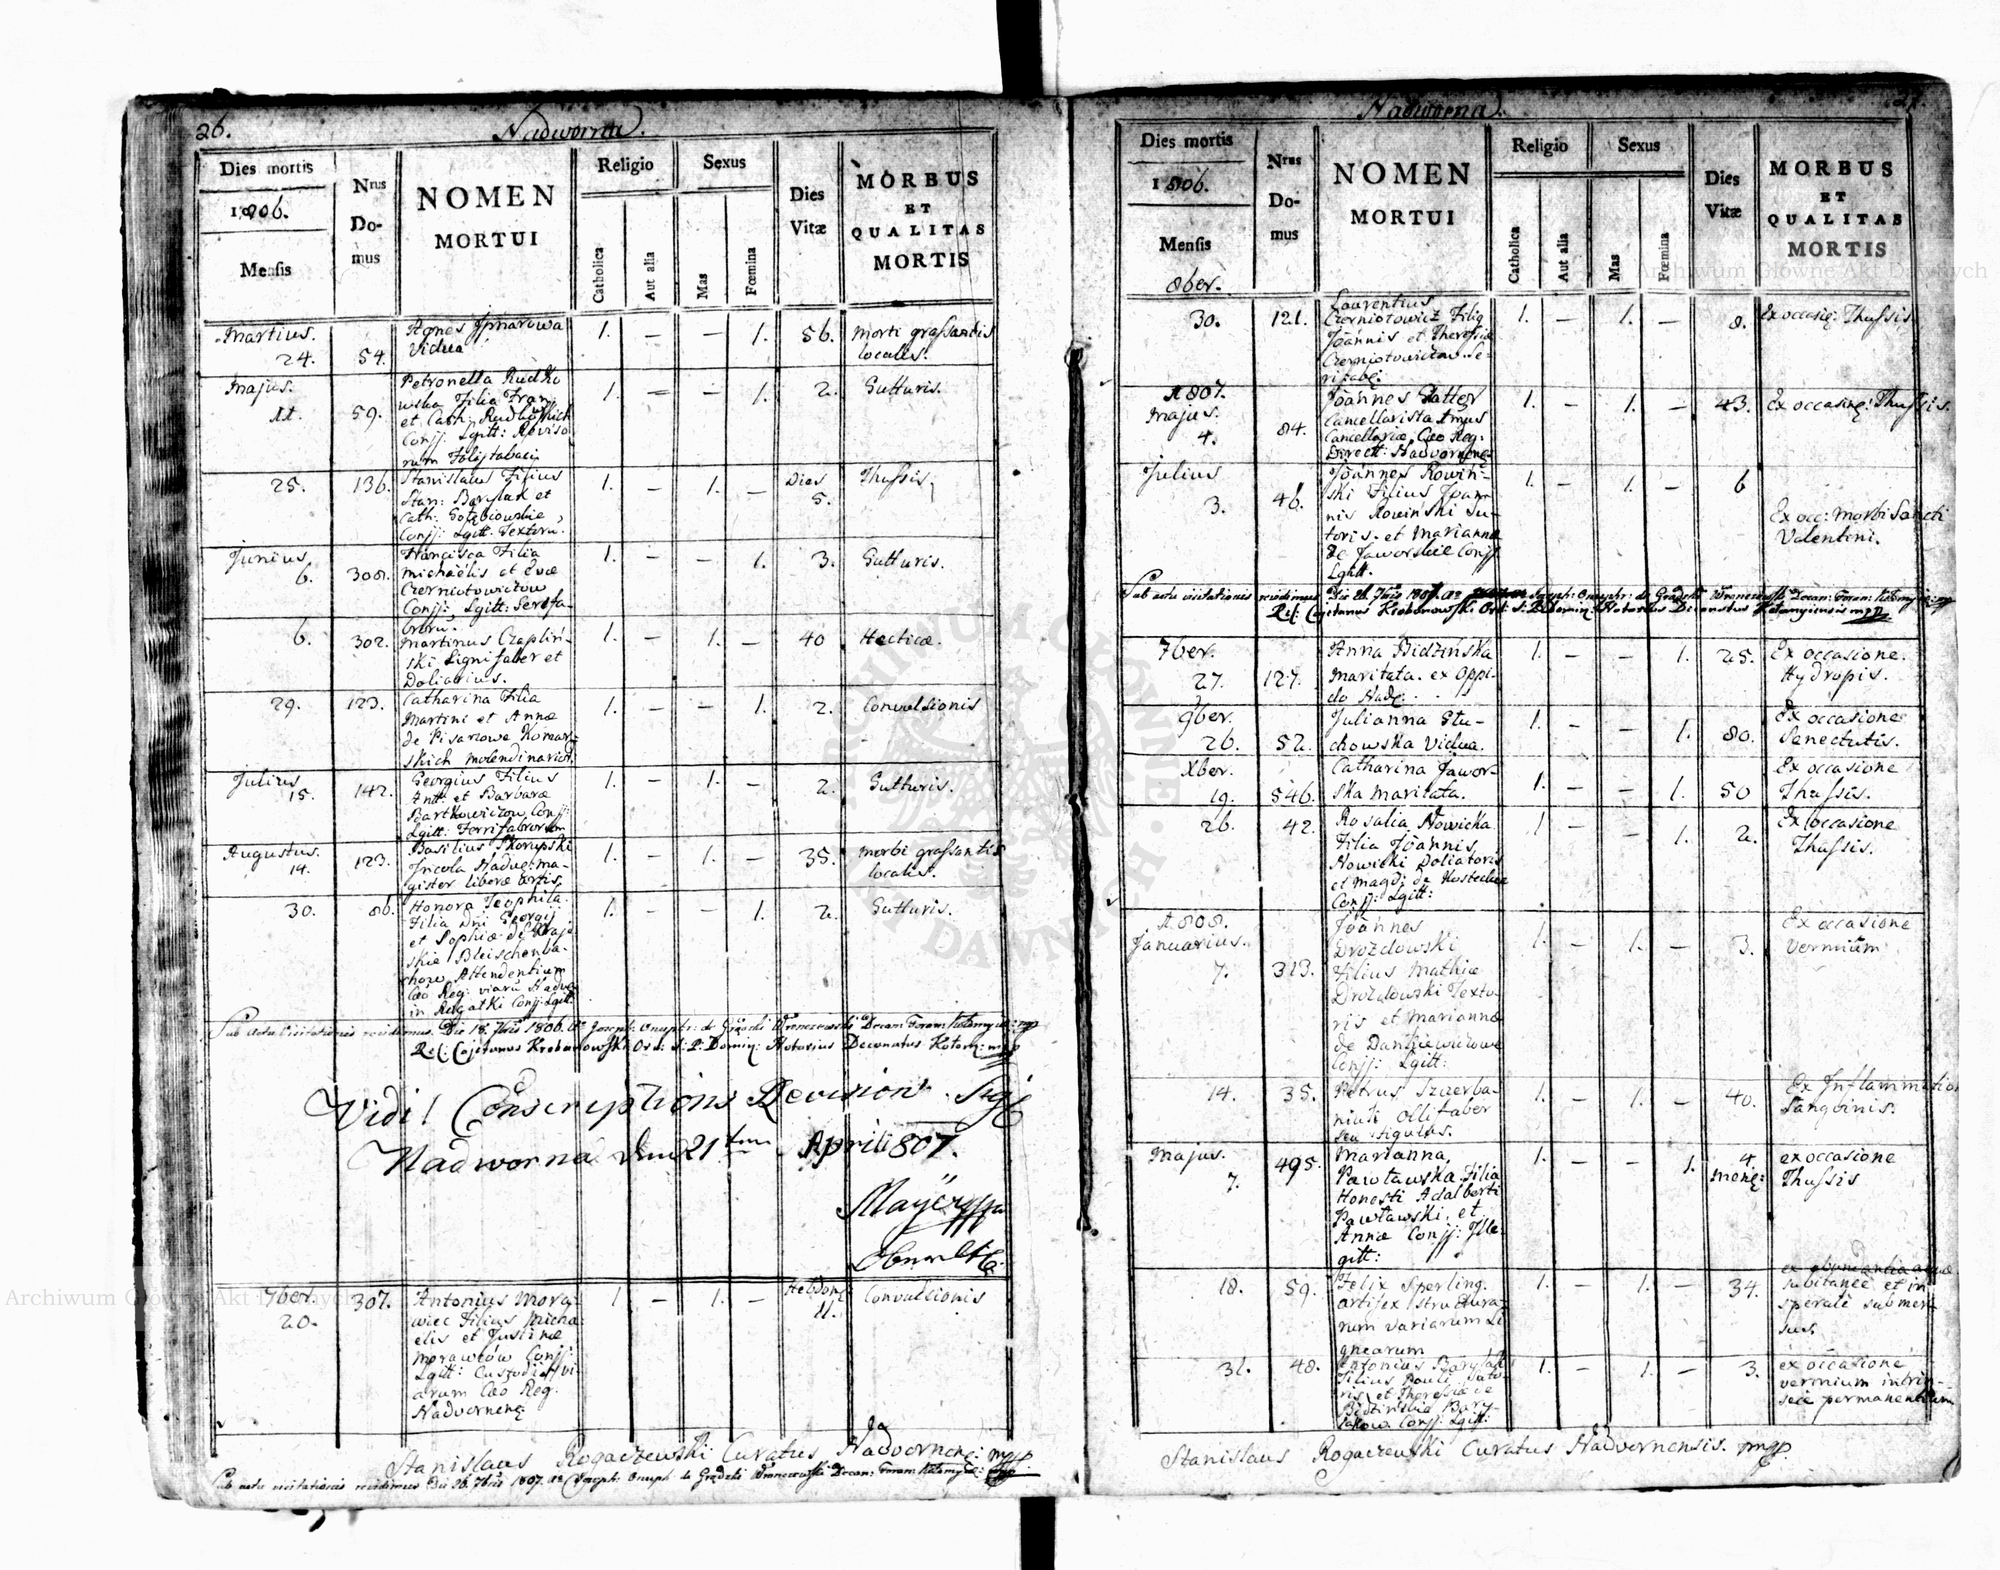 26.
Nadworna.
Dies mortis
1806.
Mensis
Nrus
Do-
mus
NOMEN
MORTUI
Religio
Catholica
Aut alia
Sexus
Mas
Fœmina
Dies
Vitæ
MORBUS
ET
QUALITAS
MORTIS
Martius.
24.
54.
Agnes
Vidua
1.
–
–
1.
56.
Morti grassantis
localis.
Majus.
11.
59.
Petronella Rudko
wska Filia Fran
et Cath: Rudkowskich
Conjj: Lgitt: Reviso
rum
1.
–
–
1.
2.
Gutturis.
25.
136.
Stanislaus Filius
Stan: Barylak et
Cath: Gołębiowskie
Conjj: Lgitt: Textoru.
1.
–
1.
–
Dies
5.
Thussis.
Junius
6.
308.
Francisca Filia
Michaëlis et Evæ
Czerniotowiczow
Conjj: Lgitt: Serifa-
brorū.
1.
–
–
1.
3.
Gutturis.
6.
302.
Martinus Czapliń-
ski Lignifaber et
Doliarius.
1.
–
1.
–
40
Hecticæ.
29.
123.
Catharina Filia
Martini et Annæ
de Pisarzowe Komar-
skich molendinarior.
1.
–
–
1.
2.
Convulsionis
Julius
15.
142.
Georgius Filius
Antt: et Barbaræ
Bartkowiczow Conjj:
Lgitt: Ferrifabrorum
1.
–
1.
–
2.
Gutturis.
Augustus.
14.
123.
Basilius Skorupski
Incola Nadwę: ma-
gister liberæ artis.
1.
–
1.
–
35.
Morbi grassantis
localis.
30.
86.
Honora Teophila
Filia Dni Georgij
et Sophiæ de Kraje
skie Bleischenba-
chow Attendentium
Cæo Reg: viarū Nadw
in Rogatki Conjj: Lgitt:
1.
–
–
1.
2.
Gutturis.
Sub actu Visitationis revidimus. Die 18. 7bris 1806. Ao Joseph: Onuphr: de Grądzki Wronczewski Decan: Foran: Kołomyien: mp
Rel: Cajetanus Krobanowski Ord: S: P: Domin: Notarius Decanatus Kołom: mp
Vidi! Conscriptions Revision Sig
Nadworna den 21ten April 1807.
Mayer mp
7ber.
20.
307.
Antonius Mora-
wiec Filius Micha
elis et Justinæ
Morawców Conjj:
Lgitt: Custodis vi
arum Cæo Reg.
Nadwornenę
1
–
1.
–
Hebdom:
11.
Convulsionis
Stanislaus Rogaczewski Curatus Nadwornenę: mp
Sub actu visitationis revidimus Die 26. 7bris 1807. Ao Joseph: Onuph: de Grądzki Wronczewski Decan: Foran: Kołomyię: mp
27.
Nadworna.
Dies mortis
1806.
Mensis
8ber.
Nrus
Do-
mus
NOMEN
MORTUI
Religio
Catholica
Aut alia
Sexus
Mas
Fœmina
Dies
Vitæ
MORBUS
ET
QUALITAS
MORTIS
30.
121.
Laurentius
Czerniotowicz Filiq
Joannis et Theressiæ
Czerniotowiczow. Se-
rifabę:
1.
–
1.
–
8.
Ex occasię: Thussis.
1807.
Majus.
4.
84.
Joannes Statter
Cancellarista
Cancellariæ Cæo Reg:
Directt: Nadwornenę
1.
–
1.
–
43.
Ex occasinę: Thussis.
Julius
3.
46.
Joannes Rowiń-
ski Filius Joan-
nis Rowiński Su-
toris. et Marianna
de Jaworskie Conjj
Lgitt.
1.
–
1.
–
6
Ex occ: morbi Sancti
Valentini.
Sub actu visitationis revidimus Die 26. 7bris 1807. Ao Joseph: Onuphr: de Grądzki Wronczewski Decan: Foran: Kołomyię: mp
Rel: Cajetanus Krobanowski Ord: S: P: Domin: Notarius Decanatus Kołomyiensis mp
7ber.
27.
127.
Anna Bidzińska
Maritata. ex Oppi-
do Nadę:
1.
–
–
1.
25.
Ex occasione.
Hydropis.
9ber.
26.
52.
Julianna Stu-
chowska Vidua.
1.
–
–
1.
80.
Ex occasione
Senectutis.
Xber.
19.
546.
Catharina Jawor-
ska Maritata.
1.
–
–
1.
50
Ex occasione
Thussis.
26.
42.
Rosalia Nowicka
Filia Joannis
Nowicki Doliatoris
et Magd: de Kosteckie
Conjj: Lgitt:
1
–
–
1.
2.
Ex occasione
Thussis.
1808.
Januarius.
7.
313.
Joannes
Drozdowski
Filius Mathiæ
Drozdowski Texto-
ris et Mariannæ
de Dankiewiczowe
Conjj: Lgitt:
1.
–
1.
–
3.
Ex occasione
Vermium
14.
35.
Petrus Szczerba-
niuk Ollifaber
seu figulus.
1.
–
1.
–
40.
Ex Inflammation
Sangvinis.
Majus.
7.
495.
Marianna,
Pawławska Filia
Honesti Adalberti
Pawławski. et
Annæ Conjj: Ille-
gitt:
1.
–
–
1.
4.
Menę:
ex occasione
Thussis
18.
59.
Felix Sperling.
artifex structura-
rum variarum Li
gnearum
1.
–
1.
–
34.
ex abundantia aquæ
subitaneę et in
speratè submer-
sus.
31.
48.
Antonius Barylak
Filius Pauli Suto-
ris et Theressiæ de
Bidzińskie Bary-
lakow Conjj: Lgitt:
1.
–
1.
–
3.
ex occasione
vermium intrin-
seie permanentium
Stanislaus Rogaczewski Curatus Nadvornensis. mp.
Archiwum Główne Akt Dawnych
Archiwum Główne Akt Dawnych
ARCHIWUM GŁÓWNE AKT DAWNYCH